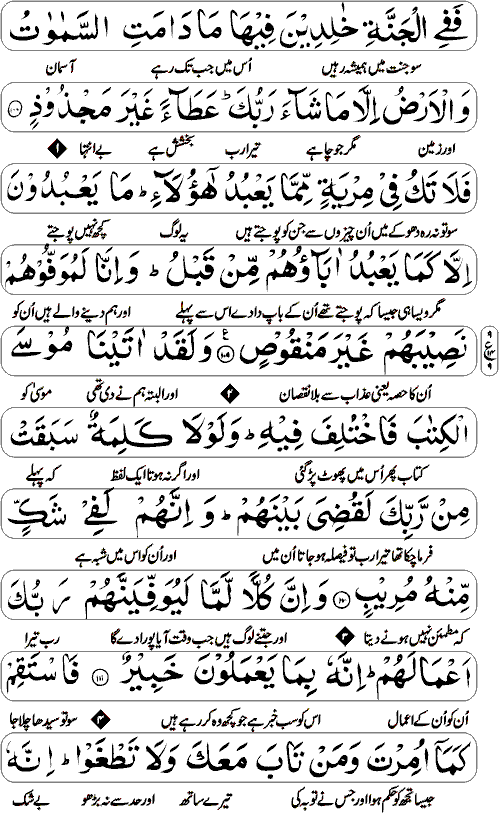 فَفِی الْجَنَّةِ خٰلِدِیْنَ فِیْهَا مَا دَامَتِ السَّمٰوٰتُ
سو جنت میں ہمیشہ رہیں اُس میں جب تک رہے آسمان
وَالْاَرْضُ اِلَّا مَا شَآءَ رَبُّكَ ؕ عَطَآءً غَیْرَ مَجْذُوْذٍ ۝۱۰۸
اور زمین مگر جو چاہے تیرا رب بخشش ہے بے انتہا ۱
فَلَا تَكُ فِیْ مِرْیَةٍ مِّمَّا یَعْبُدُ هٰۤؤُلَآءِ ؕ مَا یَعْبُدُوْنَ
سو تو نہ رہ دھوکے میں اُن چیزوں سے جن کو پوجتے ہیں یہ لوگ کچھ نہیں پوجتے
اِلَّا كَمَا یَعْبُدُ اٰبَآؤُهُمْ مِّنْ قَبْلُ ؕ وَاِنَّا لَمُوَفُّوْهُمْ
مگر ویسا ہی جیسا کہ پوجتے تھے اُن کے باپ دادے اس سے پہلے اور ہم دینے والے ہیں اُن کو
نَصِیْبَهُمْ غَیْرَ مَنْقُوْصٍ ۝۱۰۹ ع وَلَقَدْ اٰتَیْنَا مُوْسَی
اُن کا حصہ یعنی عذاب سے بلا نقصان ۲ اور البتہ ہم نے دی تھی موسیٰ کو
الْكِتٰبَ فَاخْتُلِفَ فِیْهِ ؕ وَلَوْلَا كَلِمَةٌ سَبَقَتْ
کتاب پھر اُس میں پھوٹ پڑ گئی اور اگر نہ ہوتا ایک لفظ کہ پہلے
مِنْ رَّبِّكَ لَقُضِیَ بَیْنَهُمْ ؕ وَاِنَّهُمْ لَفِیْ شَكٍّ
فرما چکا تھا تیرا رب تو فیصلہ ہو جاتا اُن میں اور اُن کو اس میں شبہ ہے
مِّنْهُ مُرِیْبٍ ۝۱۱۰ وَاِنَّ كُلًّا لَّمَّا لَیُوَفِّیَنَّهُمْ رَبُّكَ
کہ مطمئن نہیں ہونے دیتا ۳ اور جتنے لوگ ہیں جب وقت آیا پورا دے گا رب تیرا
اَعْمَالَهُمْ ؕ اِنَّهٗ بِمَا یَعْمَلُوْنَ خَبِیْرٌ ۝۱۱۱ فَاسْتَقِمْ
اُن کو اُن کے اعمال اس کو سب خبر ہے جو کچھ وہ کر رہے ہیں ۴ سو تو سیدھا چلا جا
كَمَاۤ اُمِرْتَ وَمَنْ تَابَ مَعَكَ وَلَا تَطْغَوْا ؕ اِنَّهٗ
جیسا تجھ کو حکم ہوا اور جس نے توبہ کی تیرے ساتھ اور حد سے نہ بڑھو بے شک